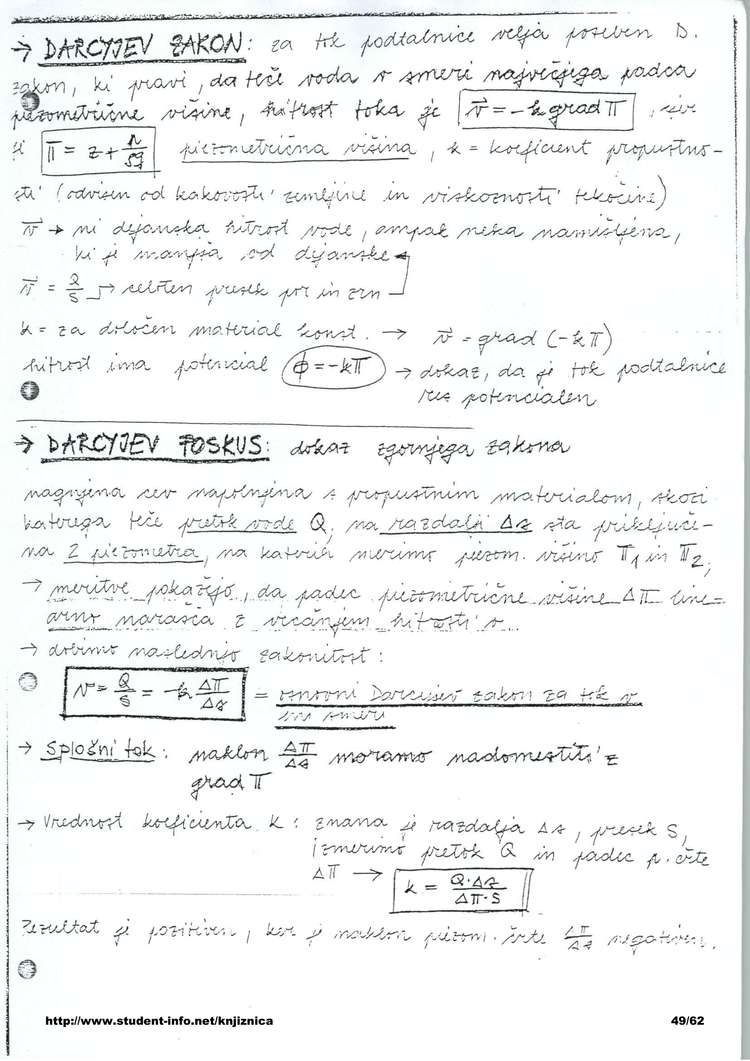 → DARCYJEV ZAKON: za tok podtalnice velja poseben D.
zakon, ki pravi, da teče voda v smeri največjega padca
piezometrične višine, hitrost toka je v⃗ = -k grad Π, kjer
je Π = z + p/ρg piezometrična višina, k = koeficient propustno-
sti (odvisen od kakovosti zemljine in viskoznosti tekočine)
v⃗ → ni dejanska hitrost vode, ampak neka namišljena,
ki je manjša od dejanske
v⃗ = Q/S → celoten presek por in zrn
k = za določen material konst. → v⃗ = grad (-kΠ)
hitrost ima potencial ϕ = -kΠ → dokaz, da je tok podtalnice
res potencialen
→ DARCYJEV POSKUS: dokaz zgornjega zakona
nagnjena cev napolnjena s propustnim materialom, skozi
katerega teče pretok vode Q, na razdalji Δs sta priključe-
na 2 piezometra, na katerih merimo piezom. višino Π1 in Π2,
→ meritve pokažejo, da padec piezometrične višine ΔΠ line=
arno narašča z večanjem hitrosti v.
→ dobimo naslednjo zakonitost:
v = Q/S = -k ΔΠ/Δs = osnovni Darcyjev zakon za tok v
eni smeri
→ Splošni tok: naklon ΔΠ/Δs moramo nadomestiti z
grad Π
→ Vrednost koeficienta k: znana je razdalja Δs, presek S,
izmerimo pretok Q in padec p. črte
ΔΠ → k = Q·Δs/ΔΠ·S
Rezultat je pozitiven, ker je naklon piezom. črte ΔΠ/Δs negativen.
http://www.student-info.net/knjiznica
49/62